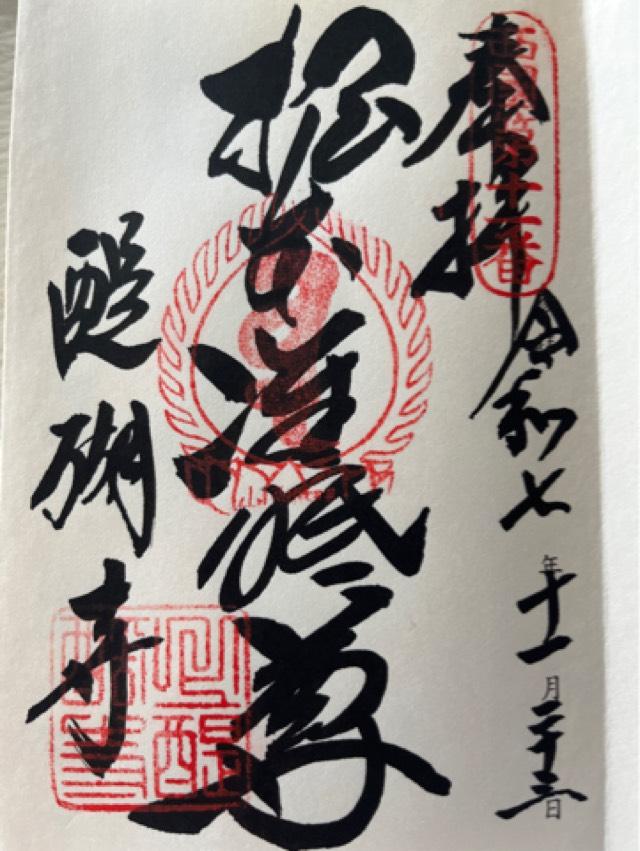 西国第十一番
奉拝
令和七年十一月二十三日
根本准胝尊
醍醐寺